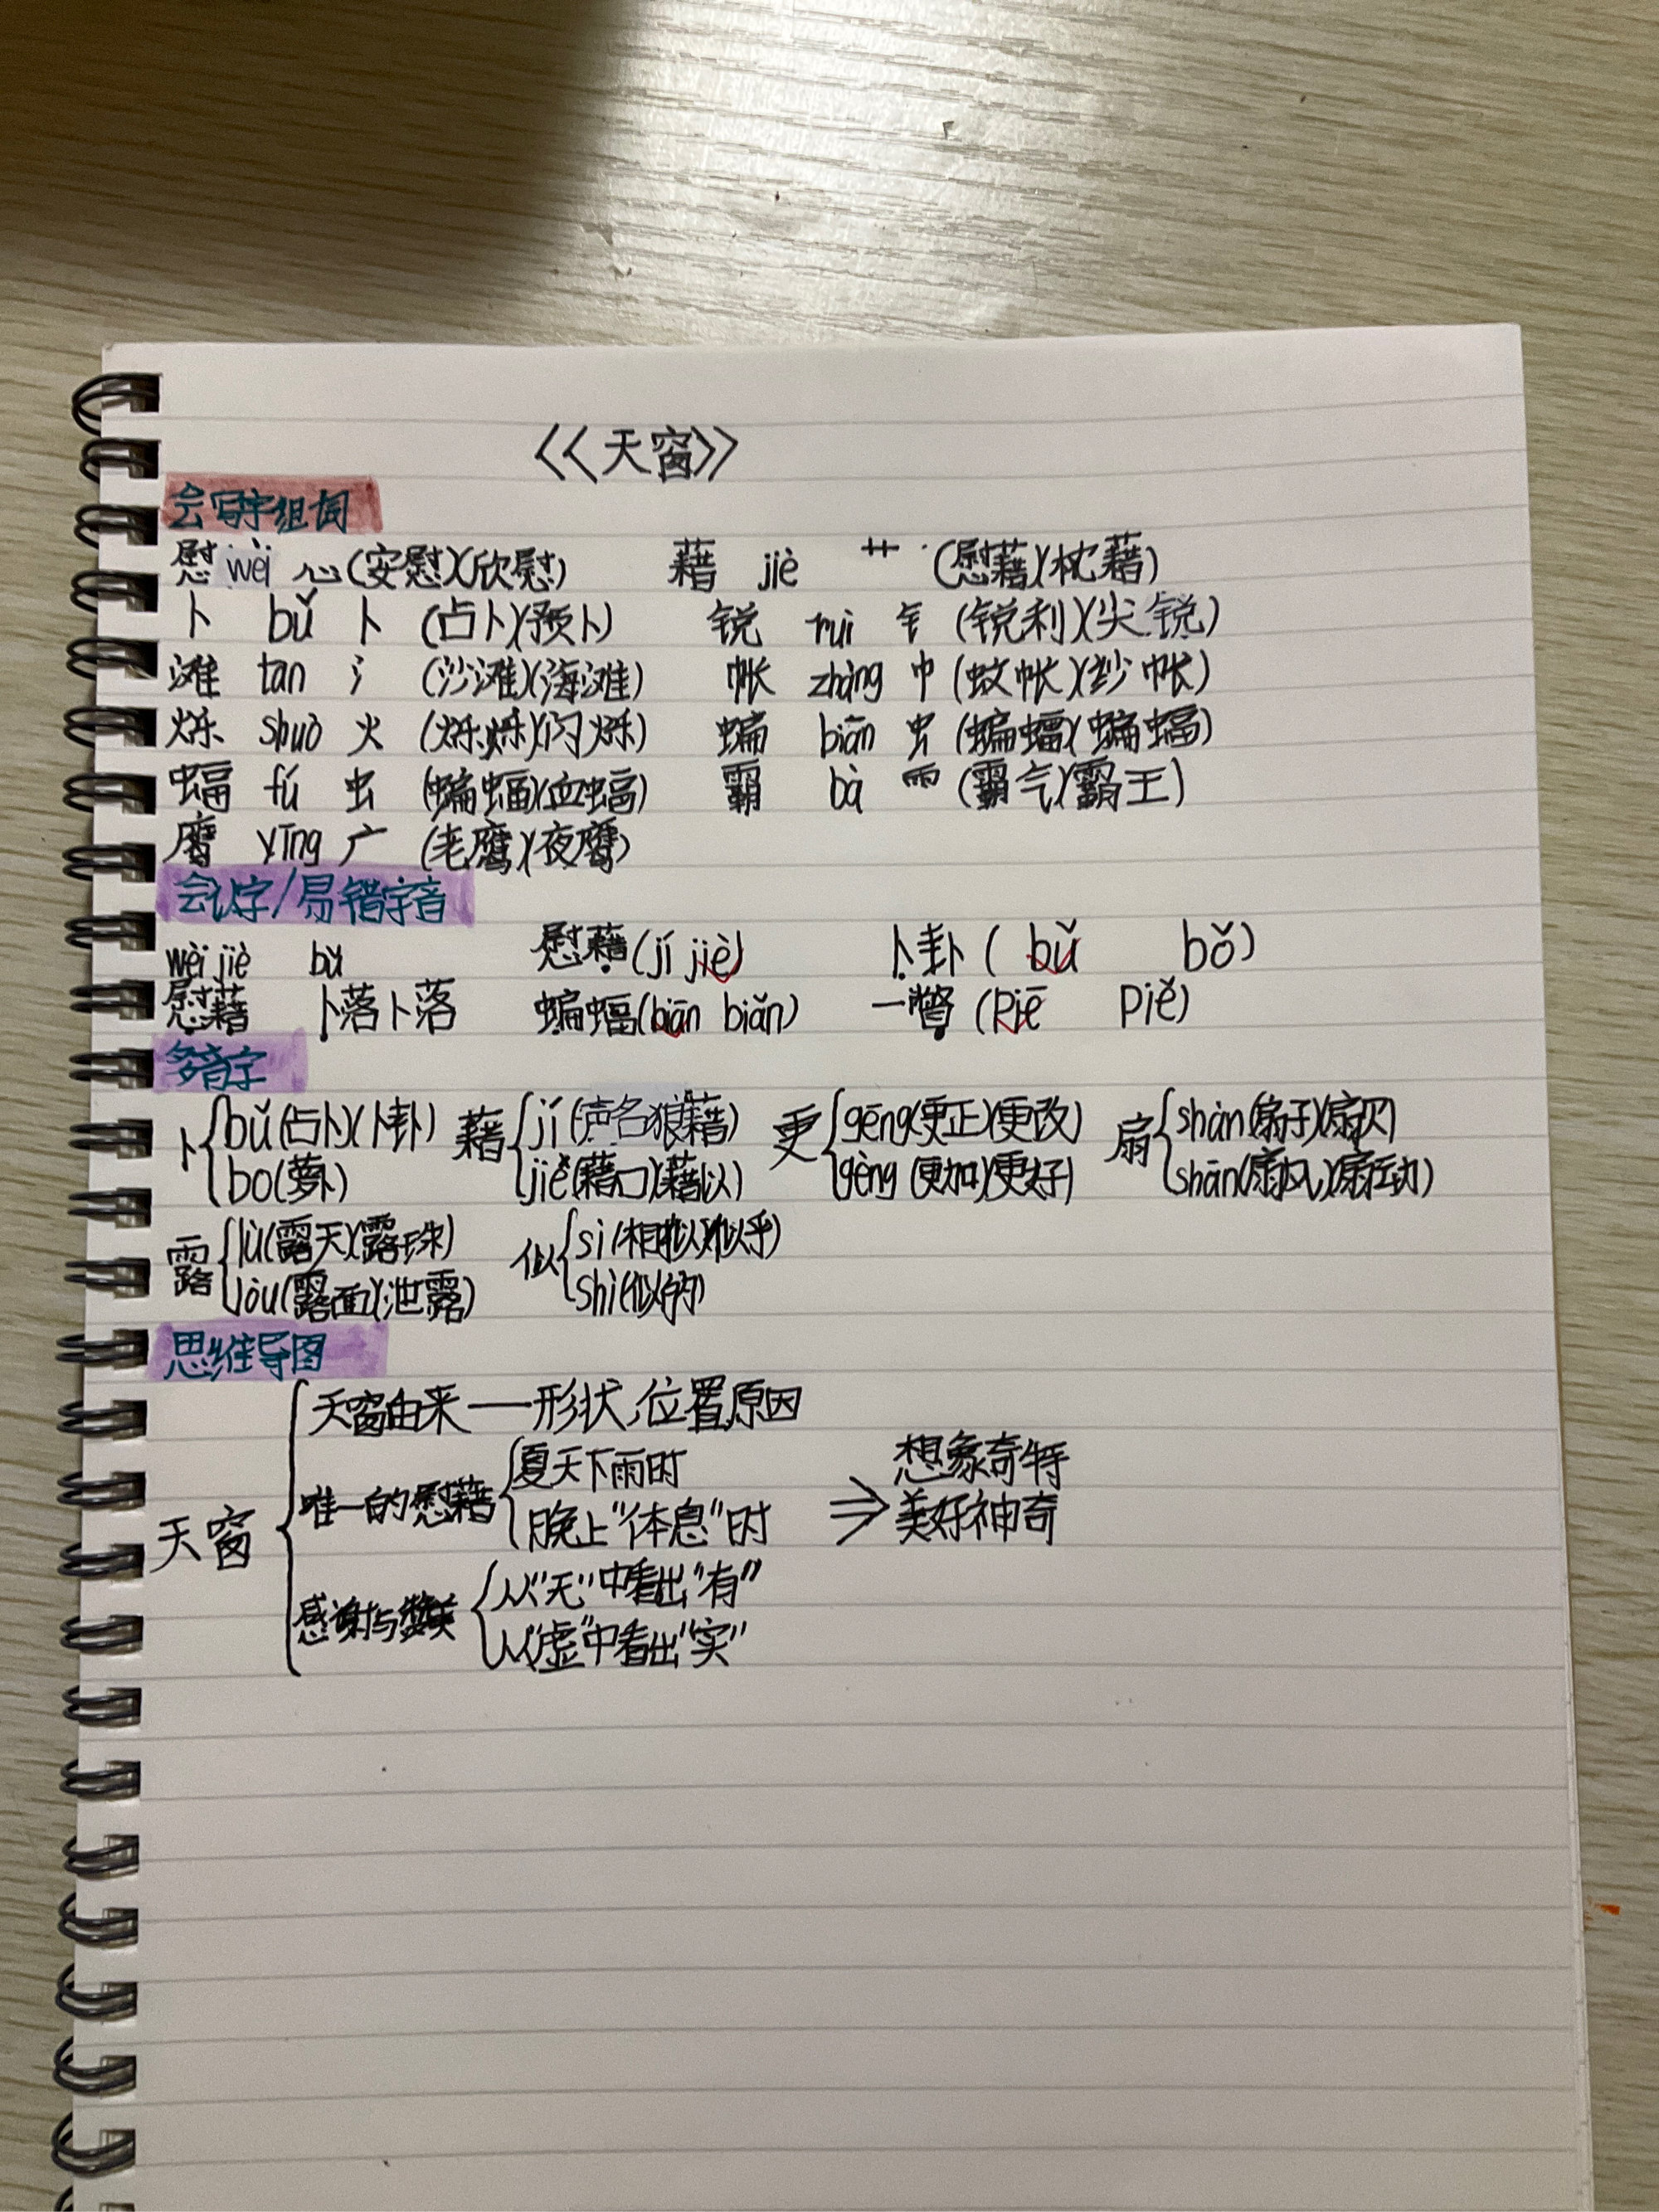 《天窗》
会写字组词
慰 wèi 心(安慰)(欣慰) 藉 jiè 艹 (慰藉)(枕藉)
卜 bǔ 卜 (占卜)(预卜) 锐 ruì 钅 (锐利)(尖锐)
滩 tan 氵 (沙滩)(海滩) 帐 zhàng 巾 (蚊帐)(纱帐)
烁 shuò 火 (烁烁)(闪烁) 蝙 biān 虫 (蝙蝠)(蝙蝠)
蝠 fú 虫 (蝙蝠)(血蝠) 霸 bà ⻗ (霸气)(霸王)
鹰 yīng 广 (老鹰)(夜鹰)
会认字/易错字音
wèi jiè bǔ 慰藉(jí jiè) 卜卦( bǔ bǒ)
慰藉 卜落卜落 蝙蝠(biān biǎn) 一瞥(piē piě)
多音字
卜{bǔ(占卜)(卜卦) 藉{jí(声名狼藉) 更{gēng(更正)(更改) 扇{shàn(扇子)(扇贝)
bo(萝卜) jiè(藉口)(藉以) gèng(更加)(更好) shān(扇风)(扇动)
露{lù(露天)(露珠) 似{sì(相似)(似乎)
lòu(露面)(泄露) shì(似的)
思维导图
天窗由来——形状,位置,原因
夏天下雨时 想象奇特
唯一的慰藉
晚上"休息"时 ⇒美好神奇
天窗
从"无"中看出"有"
感谢与赞美
从"虚"中看出"实"